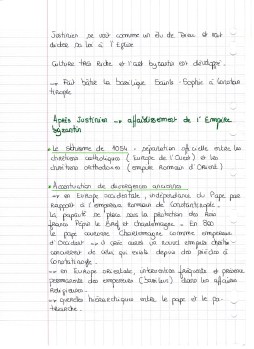 Justinien se voit comme un élu de Dieu et veut
dicter sa loi à l'Eglise
Culture très riche et l'art byzantin est développé.
→ Fait bâtir la basilique Sainte-Sophie à Constan
tinople
Après Justinien → affaiblissement de l'Empire
byzantin
• Le schisme de 1054 : séparation officielle entre les
chrétiens catholiques (Europe de l'Ouest) et les
chrétiens orthodoxes (empire Romain d'Orient)
• Accentuation de divergences anciennes
→ en Europe occidentale, indépendance du Pape par
rapport à l'empereur Romain de Constantinople.
la papauté se place sous la protection des Rois
francs Pépin le Bref et Charlemagne. En 800
le pape couronne Charlemagne comme empereur
d'Occident → il crée ainsi un nouvel empire chrétien
concurrent de celui qui existe depuis des siècles à
Constantinople.
→ en Europe orientale, intervention fréquente et présence
permanente des empereurs (basileus) dans les affaires
religieuses.
→ querelles hiérarchiques entre le pape et le pa-
triarche.